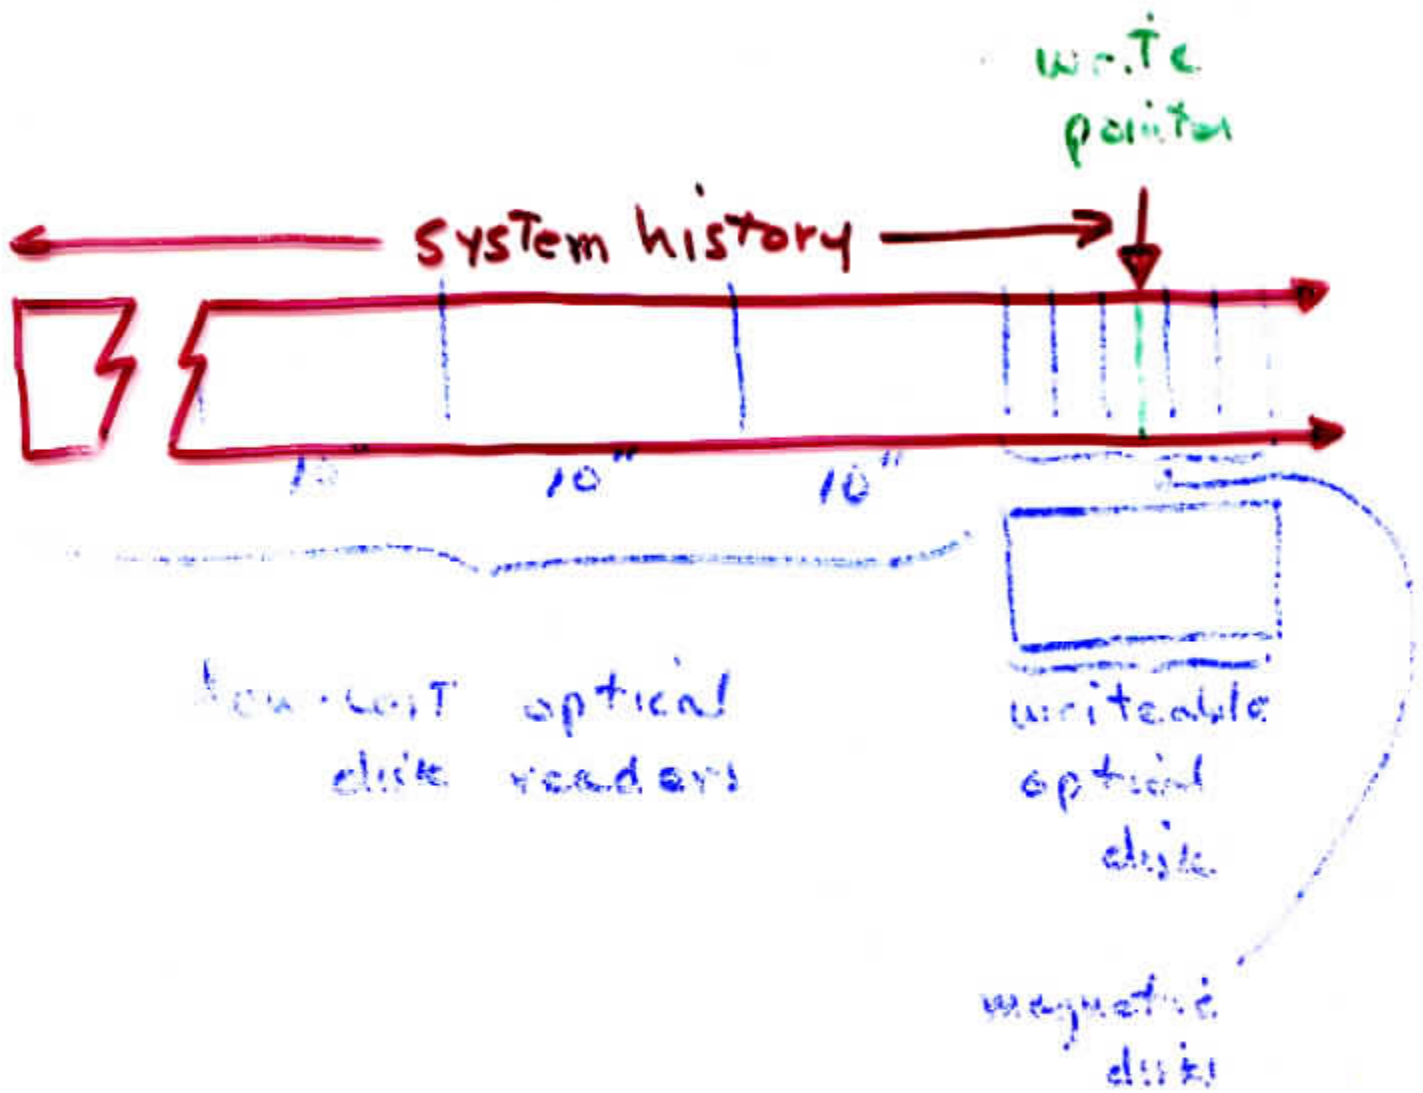 write
pointer
system history
10"
10"
10"
low-cost optical
disk readers
writeable
optical
disk
magnetic
disks